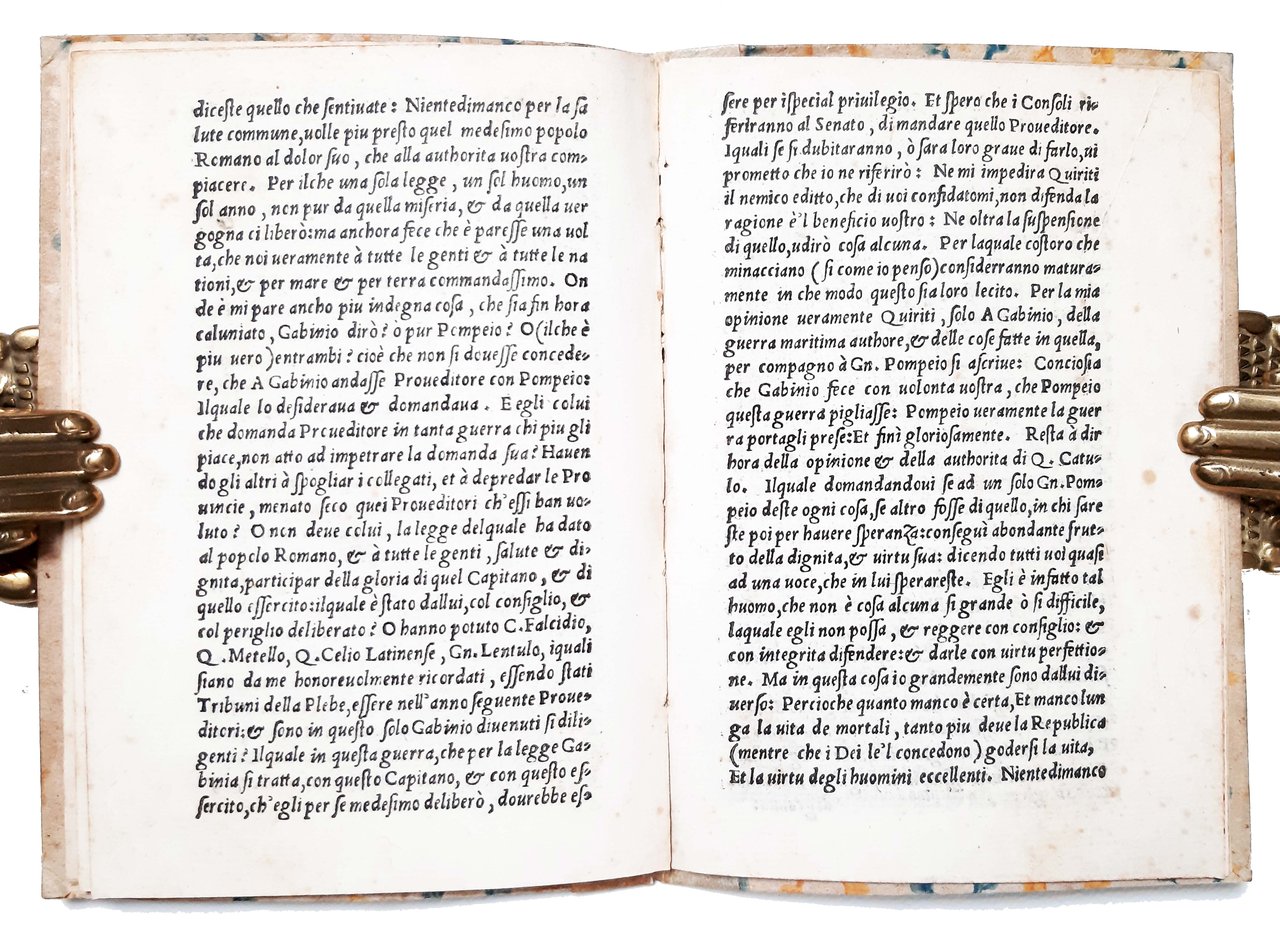 diceste quello che sentiuate: Nientedimanco per la sa
lute commune,uolle piu presto quel medesimo popolo
Romano al dolor suo, che alla authorita uostra com-
piacere. Per ilche una sola legge, un sol huomo,un
sol anno, non pur da quella miseria,& da quella uer
gogna ci liberò:ma anchora fece che è paresse una uol
ta,che noi ueramente à tutte le genti & à tutte le na
tioni,& per mare & per terra commandassimo. On
de è mi pare ancho piu indegna cosa, che sia fin hora
caluniato, Gabinio dirò? ò pur Pompeio? O(ilche è
piu uero)entrambi? cioè che non si douesse concede-
re, che A Gabinio andasse Proueditore con Pompeio:
Ilquale lo desideraua & domandaua. E egli colui
che domanda Proueditore in tanta guerra chi piu gli
piace,non atto ad impetrare la domanda sua? Hauen
do gli altri à spogliar i collegati, et à depredar le Pro
uincie, menato seco quei Proueditori ch'essi han uo-
luto? O non deue colui, la legge delquale ha dato
al popolo Romano, & à tutte le genti, salute & di-
gnita,participar della gloria di quel Capitano, & di
quello essercito:ilquale è stato dallui,col consiglio, &
col periglio deliberato? O hanno potuto C.Falcidio,
Q.Metello, Q.Celio Latinense, Gn.Lentulo, iquali
siano da me honoreuolmente ricordati, essendo stati
Tribuni della Plebe,essere nell'anno seguente Proue-
ditori:& sono in questo solo Gabinio diuenuti si dili-
genti? Ilquale in questa guerra,che per la legge Ga-
binia si tratta,con questo Capitano, & con questo es-
sercito,ch'egli per se medesimo deliberò, dourebbe es-
sere per ispecial priuilegio. Et spero che i Consoli ri-
feriranno al Senato, di mandare quello Proueditore.
Iquali se si dubitaranno, ò sara loro graue di farlo,ui
prometto che io ne riferirò: Ne mi impedira Quiriti
il nemico editto,che di uoi confidatomi,non difenda la
ragione è'l beneficio uostro: Ne oltra la suspensione
di quello,udirò cosa alcuna. Per laquale costoro che
minacciano (si come io penso)considerranno matura-
mente in che modo questo sia loro lecito. Per la mia
opinione ueramente Quiriti, solo A Gabinio, della
guerra maritima authore,& delle cose fatte in quella,
per compagno à Gn. Pompeio si ascriue: Conciosia
che Gabinio fece con uolonta uostra, che Pompeio
questa guerra pigliasse: Pompeio ueramente la guer
ra portagli prese:Et finì gloriosamente. Resta à dir
hora della opinione & della authorita di Q. Catu-
lo. Ilquale domandandoui se ad un solo Gn.Pom-
peio deste ogni cosa,se altro fosse di quello,in chi sare
ste poi per hauere speranza:conseguì abondante frut-
to della dignita,& uirtu sua: dicendo tutti uoi quasi
ad una uoce,che in lui sperareste. Egli è infatto tal
huomo,che non è cosa alcuna si grande ò si difficile,
laquale egli non possa, & reggere con consiglio: &
con integrita difendere:& darle con uirtu perfettio-
ne. Ma in questa cosa io grandemente sono dallui di-
uerso: Percioche quanto manco è certa,Et manco lun
ga la uita de mortali, tanto piu deue la Republica
(mentre che i Dei le'l concedono) godersi la uita,
Et la uirtu degli huomini eccellenti. Nientedimanco